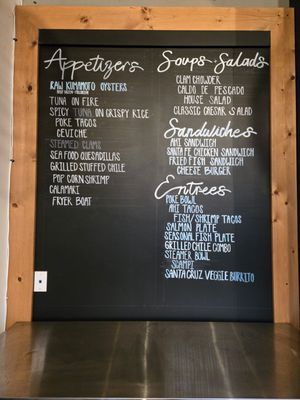 Appetizers
RAW KUMAMOTO OYSTERS
TUNA ON FIRE
SPICY TUNA ON CRISPY RICE
POKE TACOS
CEVICHE
STEAMED CLAMS
SEAFOOD QUESADILLAS
GRILLED STUFFED CHILE
POPCORN SHRIMP
CALAMARI
FRYER BOAT
Soups-Salads
CLAM CHOWDER
CALDO DE PESCADO
HOUSE SALAD
CLASSIC CAESAR SALAD
Sandwiches
AHI SANDWICH
SANTA FE CHICKEN SANDWICH
FRIED FISH SANDWICH
CHEESE BURGER
Entrées
POKE BOWL
AHI TACOS
FISH/SHRIMP TACOS
SALMON PLATE
SEASONAL FISH PLATE
GRILLED CHILE COMBO
STEAMER BOWL
SCAMPI
SANTA CRUZ VEGGIE BURRITO